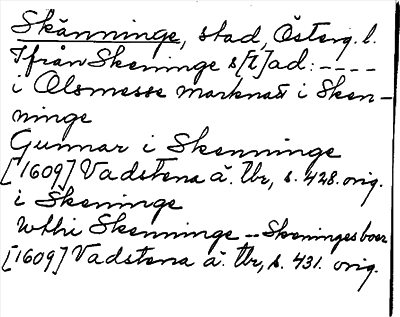 Skänninge, stad, Österg. l.
Ifrån Skeninge s[t]ad: ----
i Olsmesse marknad i Sken-
ninge
Gunnar i Skenninge
[1609] Vadstena ä. Tbr, s. 428. orig.
i Skeninge
wthi Skenninge -- Skeningesboer
[1609] Vadstena ä. Tbr, s. 431. orig.